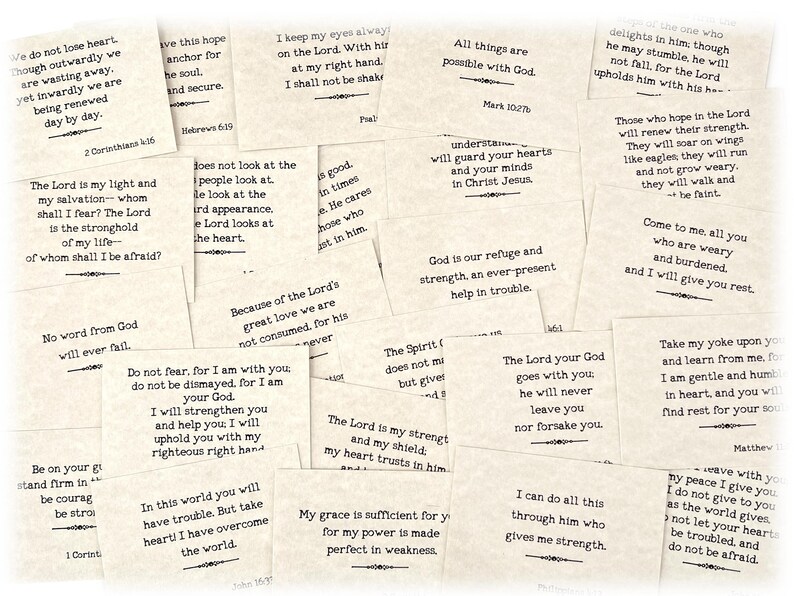 We do not lose heart.
Though outwardly we
are wasting away,
yet inwardly we are
being renewed
day by day.
2 Corinthians 4:16
ave this hope
anchor for
he soul,
and secure.
Hebrews 6:19
I keep my eyes alway
on the Lord. With hi
at my right hand,
I shall not be shake
Psal
All things are
possible with God.
Mark 10:27b
of the one who
delights in him; though
he may stumble, he will
not fall, for the Lord
upholds him with his
Those who hope in the Lord
will renew their strength.
They will soar on wings
like eagles; they will run
and not grow weary,
they will walk and
be faint.
The Lord is my light and
my salvation-- whom
shall I fear? The Lord
is the stronghold
of my life--
of whom shall I be afraid?
does not look at the
people look at.
le look at the
rd appearance,
e Lord looks at
the heart.
is good,
in times
e. He cares
hose who
ust in him.
understanding,
will guard your hearts
and your minds
in Christ Jesus.
God is our refuge and
strength, an ever-present
help in trouble.
46:1
Come to me, all you
who are weary
and burdened,
and I will give you rest.
No word from God
will ever fail.
Because of the Lord's
great love we are
not consumed, for his
never
The Spirit G
does not ma
but gives
The Lord your God
goes with you;
he will never
leave you
nor forsake you.
Take my yoke upon yo
and learn from me, fo
I am gentle and humbl
in heart, and you will
find rest for your soul
Matthew 11
Do not fear, for I am with you;
do not be dismayed, for I am
your God.
I will strengthen you
and help you; I will
uphold you with my
righteous right hand.
The Lord is my strengt
and my shield;
my heart trusts in him
Be on your gu
stand firm in th
be courag
be stro
1 Corint
In this world you will
have trouble. But take
heart! I have overcome
the world.
John 16:33
My grace is sufficient for y
for my power is made
perfect in weakness.
I can do all this
through him who
gives me strength.
Philippians
leave with yo
my peace I give you.
I do not give to you
as the world gives.
not let your hearts
be troubled, and
do not be afraid.